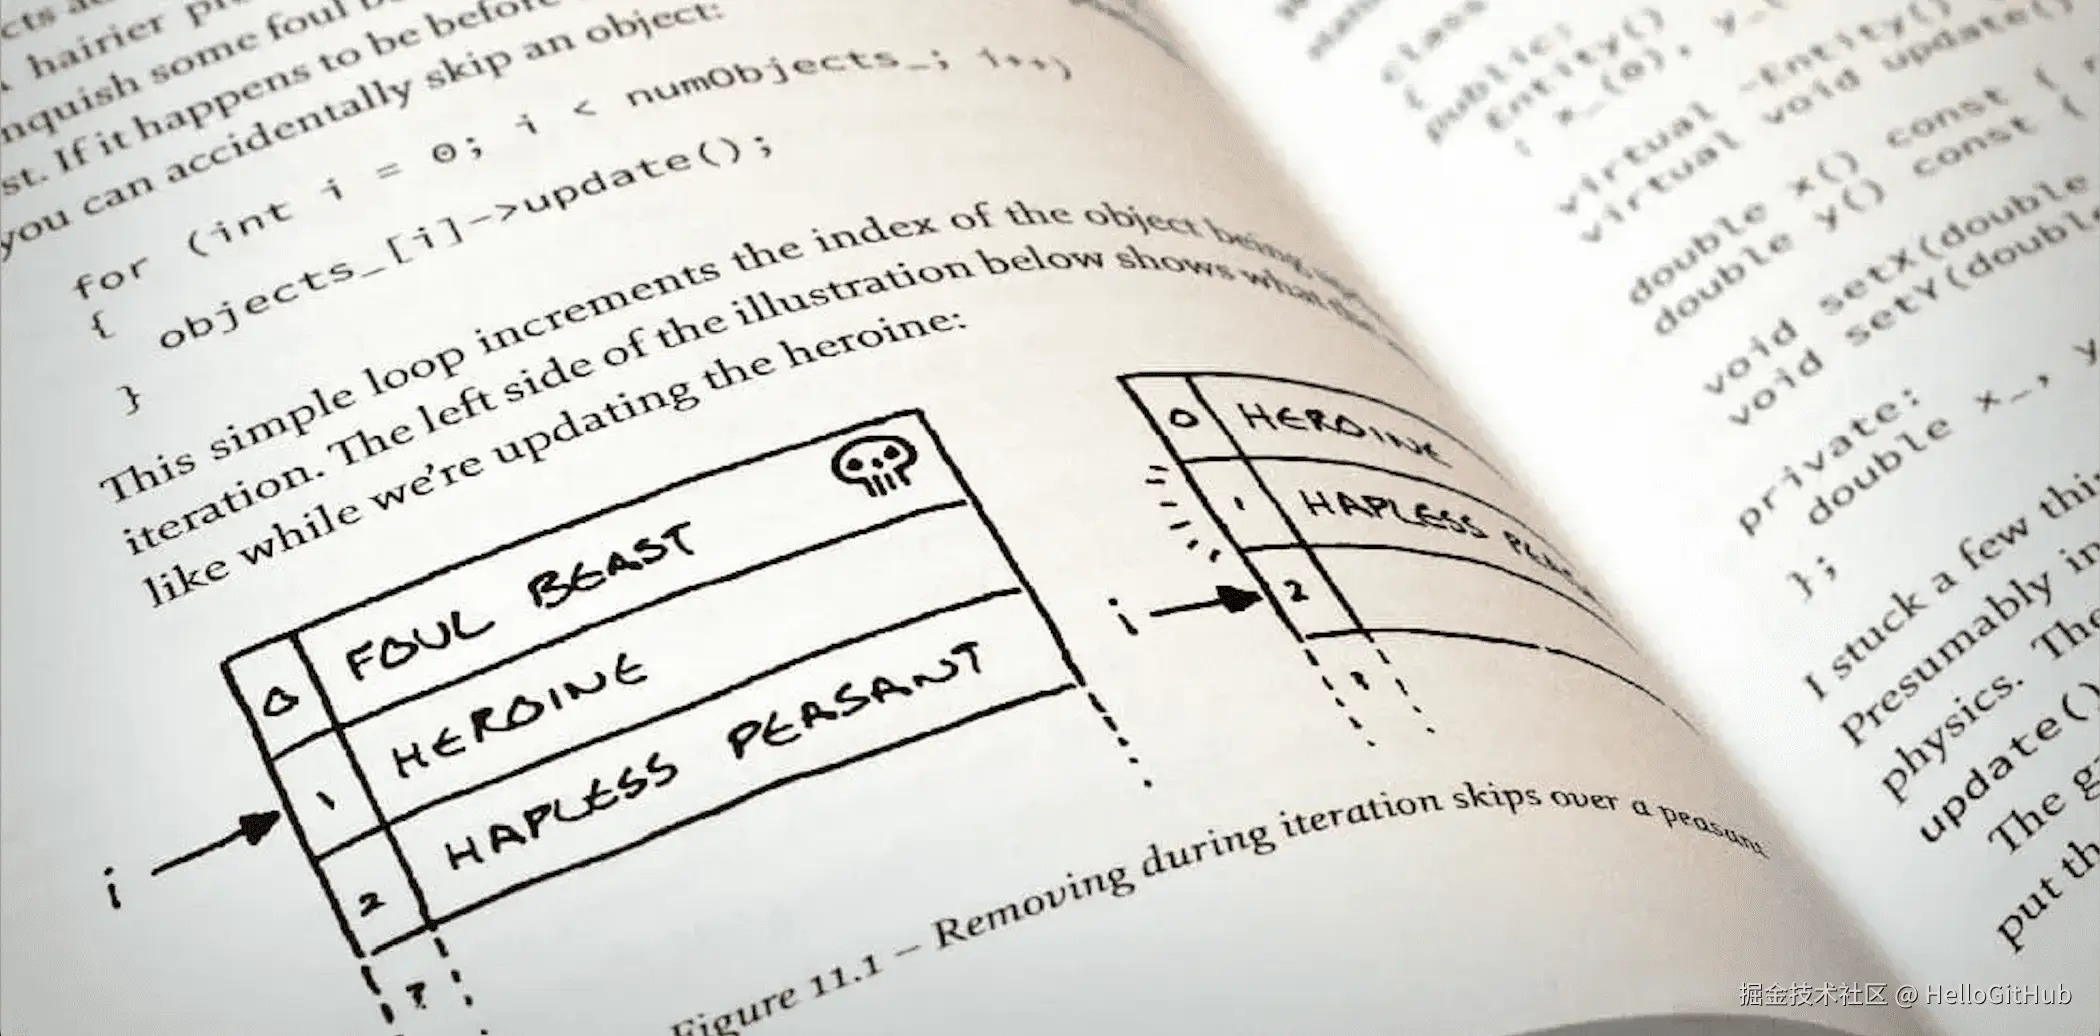 hairier
nquish some foul
st. If it happens to be before
you can accidentally skip an object:
for (int i = 0; i < numObjects_; i++)
{
objects_[i]->update();
}
This simple loop increments the index of the object being
iteration. The left side of the illustration below shows what the
like while we're updating the heroine:
0 FOUL BEAST
1 HEROINE
2 HAPLESS PEASANT
?
i
0 HEROINE
1 HAPLESS
2
?
i
Figure 11.1 – Removing during iteration skips over a peasant
class
{
public:
Entity()
: x_(0), y_(
virtual ~Entity()
virtual void update()
double x() const {
double y() const {
void setX(double
void setY(double
private:
double x_, y
};
I stuck a few thin
Presumably in
physics. The
update()
The g
put th
掘金技术社区 @ HelloGitHub